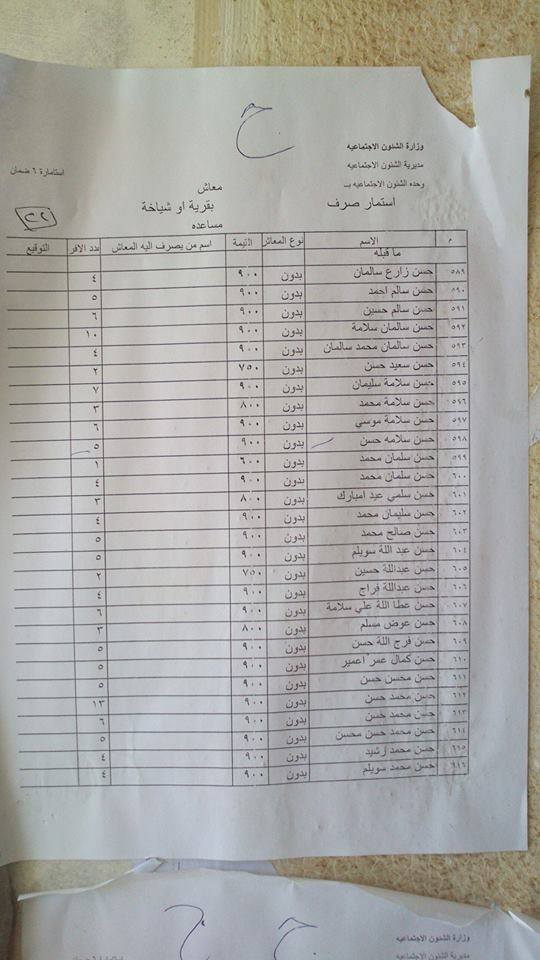 ح
وزارة الشئون الاجتماعيه
مديرية الشئون الاجتماعيه
استمارة ٦ ضمان
وحده الشئون الاجتماعيه بـ
معاش
استمار صرف
بقرية او شياخة
مساعده
٢٢
م الاسم نوع المعاش القيمة اسم من يصرف اليه المعاش عدد الافر التوقيع
ما قبله
٥٨٩ حسن زارع سالمان بدون ٩٠٠ ٤
٥٩٠ حسن سالم احمد بدون ٩٠٠ ٥
٥٩١ حسن سالم حسين بدون ٩٠٠ ٦
٥٩٢ حسن سالمان سلامة بدون ٩٠٠ ١٠
٥٩٣ حسن سالمان محمد سالمان بدون ٩٠٠ ٤
٥٩٤ حسن سعيد حسن بدون ٧٥٠ ٢
٥٩٥ حسن سلامة سليمان بدون ٩٠٠ ٧
٥٩٦ حسن سلامة محمد بدون ٨٠٠ ٣
٥٩٧ حسن سلامة موسي بدون ٩٠٠ ٦
٥٩٨ حسن سلامه حسن بدون ٩٠٠ ٥
٥٩٩ حسن سلمان محمد بدون ٦٠٠ ١
٦٠٠ حسن سلمان محمد بدون ٩٠٠ ٤
٦٠١ حسن سلمي عيد امبارك بدون ٨٠٠ ٣
٦٠٢ حسن سليمان محمد بدون ٩٠٠ ٤
٦٠٣ حسن صالح محمد بدون ٩٠٠ ٥
٦٠٤ حسن عبد اللة سويلم بدون ٩٠٠ ٥
٦٠٥ حسن عبداللة حسين بدون ٧٥٠ ٢
٦٠٦ حسن عبداللة فراج بدون ٩٠٠ ٤
٦٠٧ حسن عطا اللة علي سلامة بدون ٩٠٠ ٦
٦٠٨ حسن عوض مسلم بدون ٨٠٠ ٣
٦٠٩ حسن فرج اللة حسن بدون ٩٠٠ ٥
٦١٠ حسن كمال عمر اعمير بدون ٩٠٠ ٥
٦١١ حسن محسن حسن بدون ٩٠٠ ٥
٦١٢ حسن محمد حسن بدون ٩٠٠ ١٣
٦١٣ حسن محمد حسن بدون ٩٠٠ ٦
٦١٤ حسن محمد حسن محسن بدون ٩٠٠ ٥
٦١٥ حسن محمد رشيد بدون ٩٠٠ ٤
٦١٦ حسن محمد سويلم بدون ٩٠٠ ٤
ح ح
وزارة الشئون الاجتماعيه